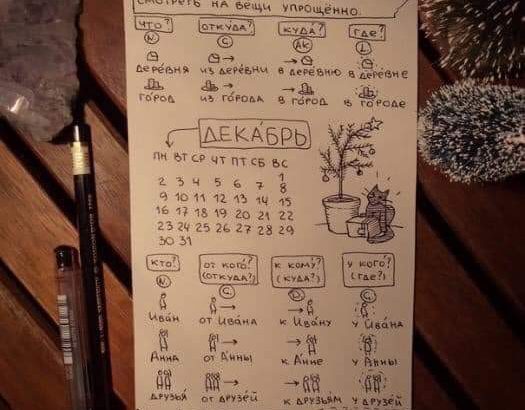 СМОТРЕТЬ НА ВЕЩИ УПРОЩЁННО.
ЧТО? ОТКУ́ДА? КУДА́? ГДЕ?
N G AK L
ДЕРЕ́ВНЯ ИЗ ДЕРЕ́ВНИ В ДЕРЕ́ВНЮ В ДЕРЕ́ВНЕ
ГО́РОД ИЗ ГО́РОДА В ГО́РОД В ГО́РОДЕ
ДЕКА́БРЬ
ПН ВТ СР ЧТ ПТ СБ ВС
1
2 3 4 5 6 7 8
9 10 11 12 13 14 15
16 17 18 19 20 21 22
23 24 25 26 27 28 29
30 31
КТО? ОТ КОГО́? К КОМУ́? У КОГО́?
(ОТКУ́ДА?) (КУДА́?) (ГДЕ?)
N G D G
ИВА́Н ОТ ИВА́НА К ИВА́НУ У ИВА́НА
А́ННА ОТ А́ННЫ К А́ННЕ У А́ННЫ
ДРУЗЬЯ́ ОТ ДРУЗЕ́Й К ДРУЗЬЯ́М У ДРУЗЕ́Й